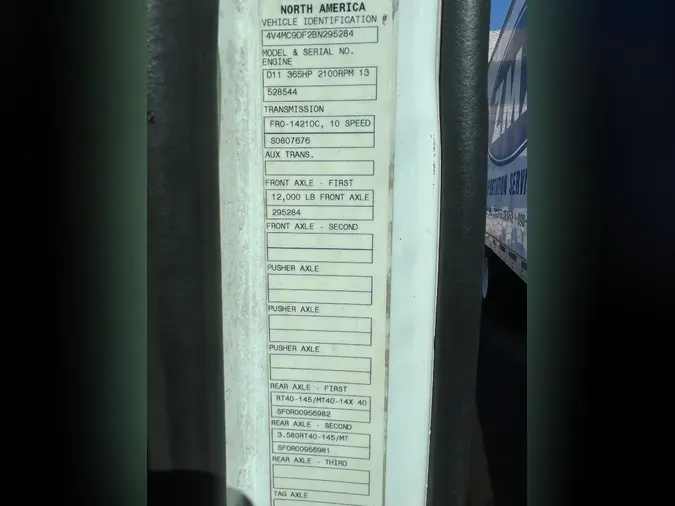 NORTH AMERICA
VEHICLE IDENTIFICATION #
4V4MC9DF2BN295284
MODEL & SERIAL NO.
ENGINE
D11 365HP 2100RPM 13
528544
TRANSMISSION
FRO-14210C, 10 SPEED
S0807676
AUX TRANS.
FRONT AXLE - FIRST
12,000 LB FRONT AXLE
295284
FRONT AXLE - SECOND
PUSHER AXLE
PUSHER AXLE
PUSHER AXLE
REAR AXLE - FIRST
RT40-145/MT40-14X 40
SFOR00956982
REAR AXLE - SECOND
3.580RT40-145/MT
SFOR00956981
REAR AXLE - THIRD
TAG AXLE